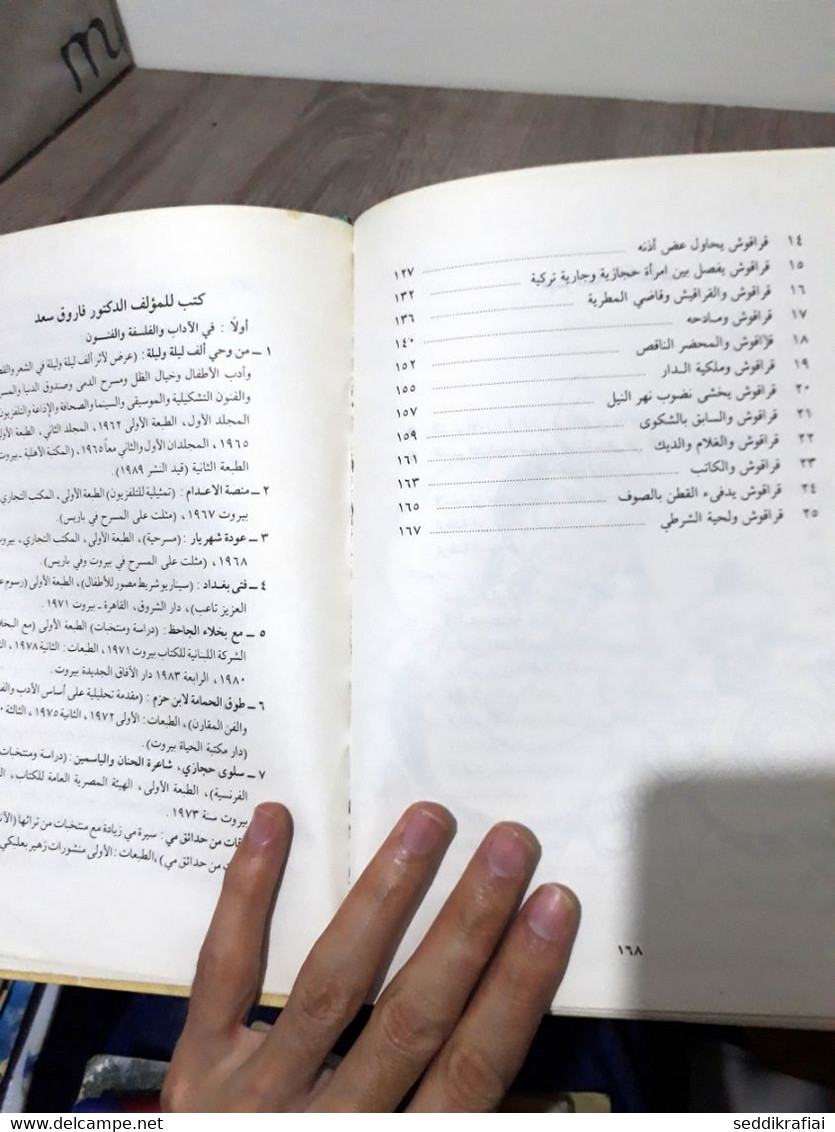 ١٤ قراقوش يحاول عض أذنه ١٢٧
١٥ قراقوش يفصل بين امرأة حجازية وجارية تركية ١٣٢
١٦ قراقوش والقراقيش وقاضي المطرية ١٣٦
١٧ قراقوش ومادحه ١٤٠
١٨ قراقوش والمحضر الناقص ١٥٢
١٩ قراقوش وملكية الدار ١٥٥
٢٠ قراقوش يخشى نضوب نهر النيل ١٥٧
٢١ قراقوش والسابق بالشكوى ١٥٩
٢٢ قراقوش والغلام والديك ١٦١
٢٣ قراقوش والكاتب ١٦٣
٢٤ قراقوش يدفىء القطن بالصوف ١٦٥
٢٥ قراقوش ولحية الشرطي ١٦٧
١٦٨
كتب للمؤلف الدكتور فاروق سعد
أولاً : في الآداب والفلسفة والفنـــون
١ ــ من وحي ألف ليلة وليلة : (عرض لأثر ألف ليلة وليلة في الشعر والقص
وأدب الأطفال وخيال الظل ومسرح الدمى وصندوق الدنيا والمسر
والفنون التشكيلية والموسيقى والسينما والصحافة والإذاعة والتلفزيون
المجلد الأول، الطبعة الأولى ١٩٦٢، المجلد الثاني، الطبعة الأولى
١٩٦٥، المجلدان الأول والثاني معاً ١٩٦٥، (المكتبة الأهلية ـ بيروت
الطبعة الثانية (قيد النشر ١٩٨٩).
٢ ــ منصة الاعدام : (تمثيلية للتلفزيون) الطبعة الأولى، المكتب التجاري
بيروت ١٩٦٧، (مثلت على المسرح في باريس).
٣ ــ عودة شهريار : (مسرحية)، الطبعة الأولى، المكتب التجاري، بيروت
١٩٦٨، (مثلت على المسرح في بيروت وفي باريس).
٤ ــ فتى بغداد : (سيناريو شريط مصور للأطفال)، الطبعة الأولى (رسوم
العزيز تاعب)، دار الشروق، القاهرة ـ بيروت ١٩٧١.
٥ ــ مع بخلاء الجاحظ : (دراسة ومنتخبات) الطبعة الأولى (مع البخلا
الشركة اللبنانية للكتاب بيروت ١٩٧١، الطبعات : الثانية ١٩٧٨،
١٩٨٠، الرابعة ١٩٨٣ دار الآفاق الجديدة بيروت.
٦ ــ طوق الحمامة لابن حزم : (مقدمة تحليلية على أساس الأدب والف
والفن المقارن)، الطبعات : الأولى ١٩٧٢، الثانية ١٩٧٥، الثالثة
(دار مكتبة الحياة بيروت).
٧ ــ سلوى حجازي، شاعرة الحنان والياسمين : (دراسة ومنتخبات
الفرنسية)، الطبعة الأولى، الهيئة المصرية العامة للكتاب،
بيروت سنة ١٩٧٣.
قات من حدائق مي : سيرة مي زيادة مع منتخبات من تراثها
ت من حدائق مي)، الطبعات : الأولى منشورات زهير بعلبكي
m
seddikrafiai